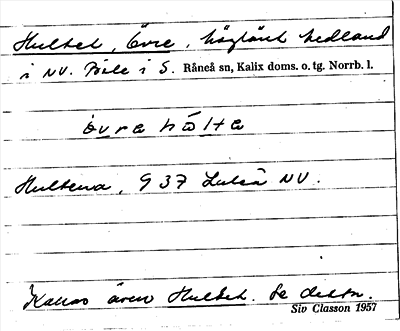 Hultet, Övre, höglänt hedland
i NV. Böle i S. Råneå sn, Kalix doms. o. tg. Norrb. l.
övre hɵ̀lte
Hultena, 9 37 Luleå NV.
Kallas även Hultet. Se detta.
Siv Classon 1957